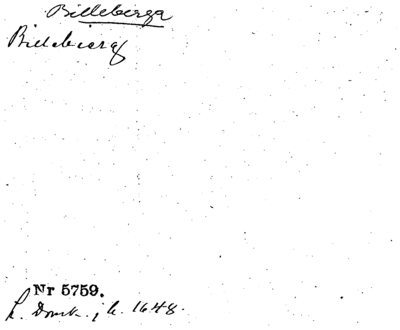 Billeberga
Billebierg
Nr 5759.
L. Domk., c. 1648.